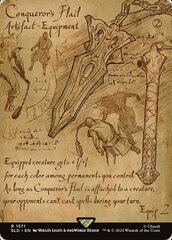 Conqueror's Flail
2
Artifact - Equipment
Equipped creature gets +1/+1
for each color among permanents you control.
As long as Conqueror's Flail is attached to a creature,
your opponents can't cast spells during your turn.
Equip 2
R 1571
SLD • EN
™ & © 2024 Wizards of the Coast
© Ubisoft